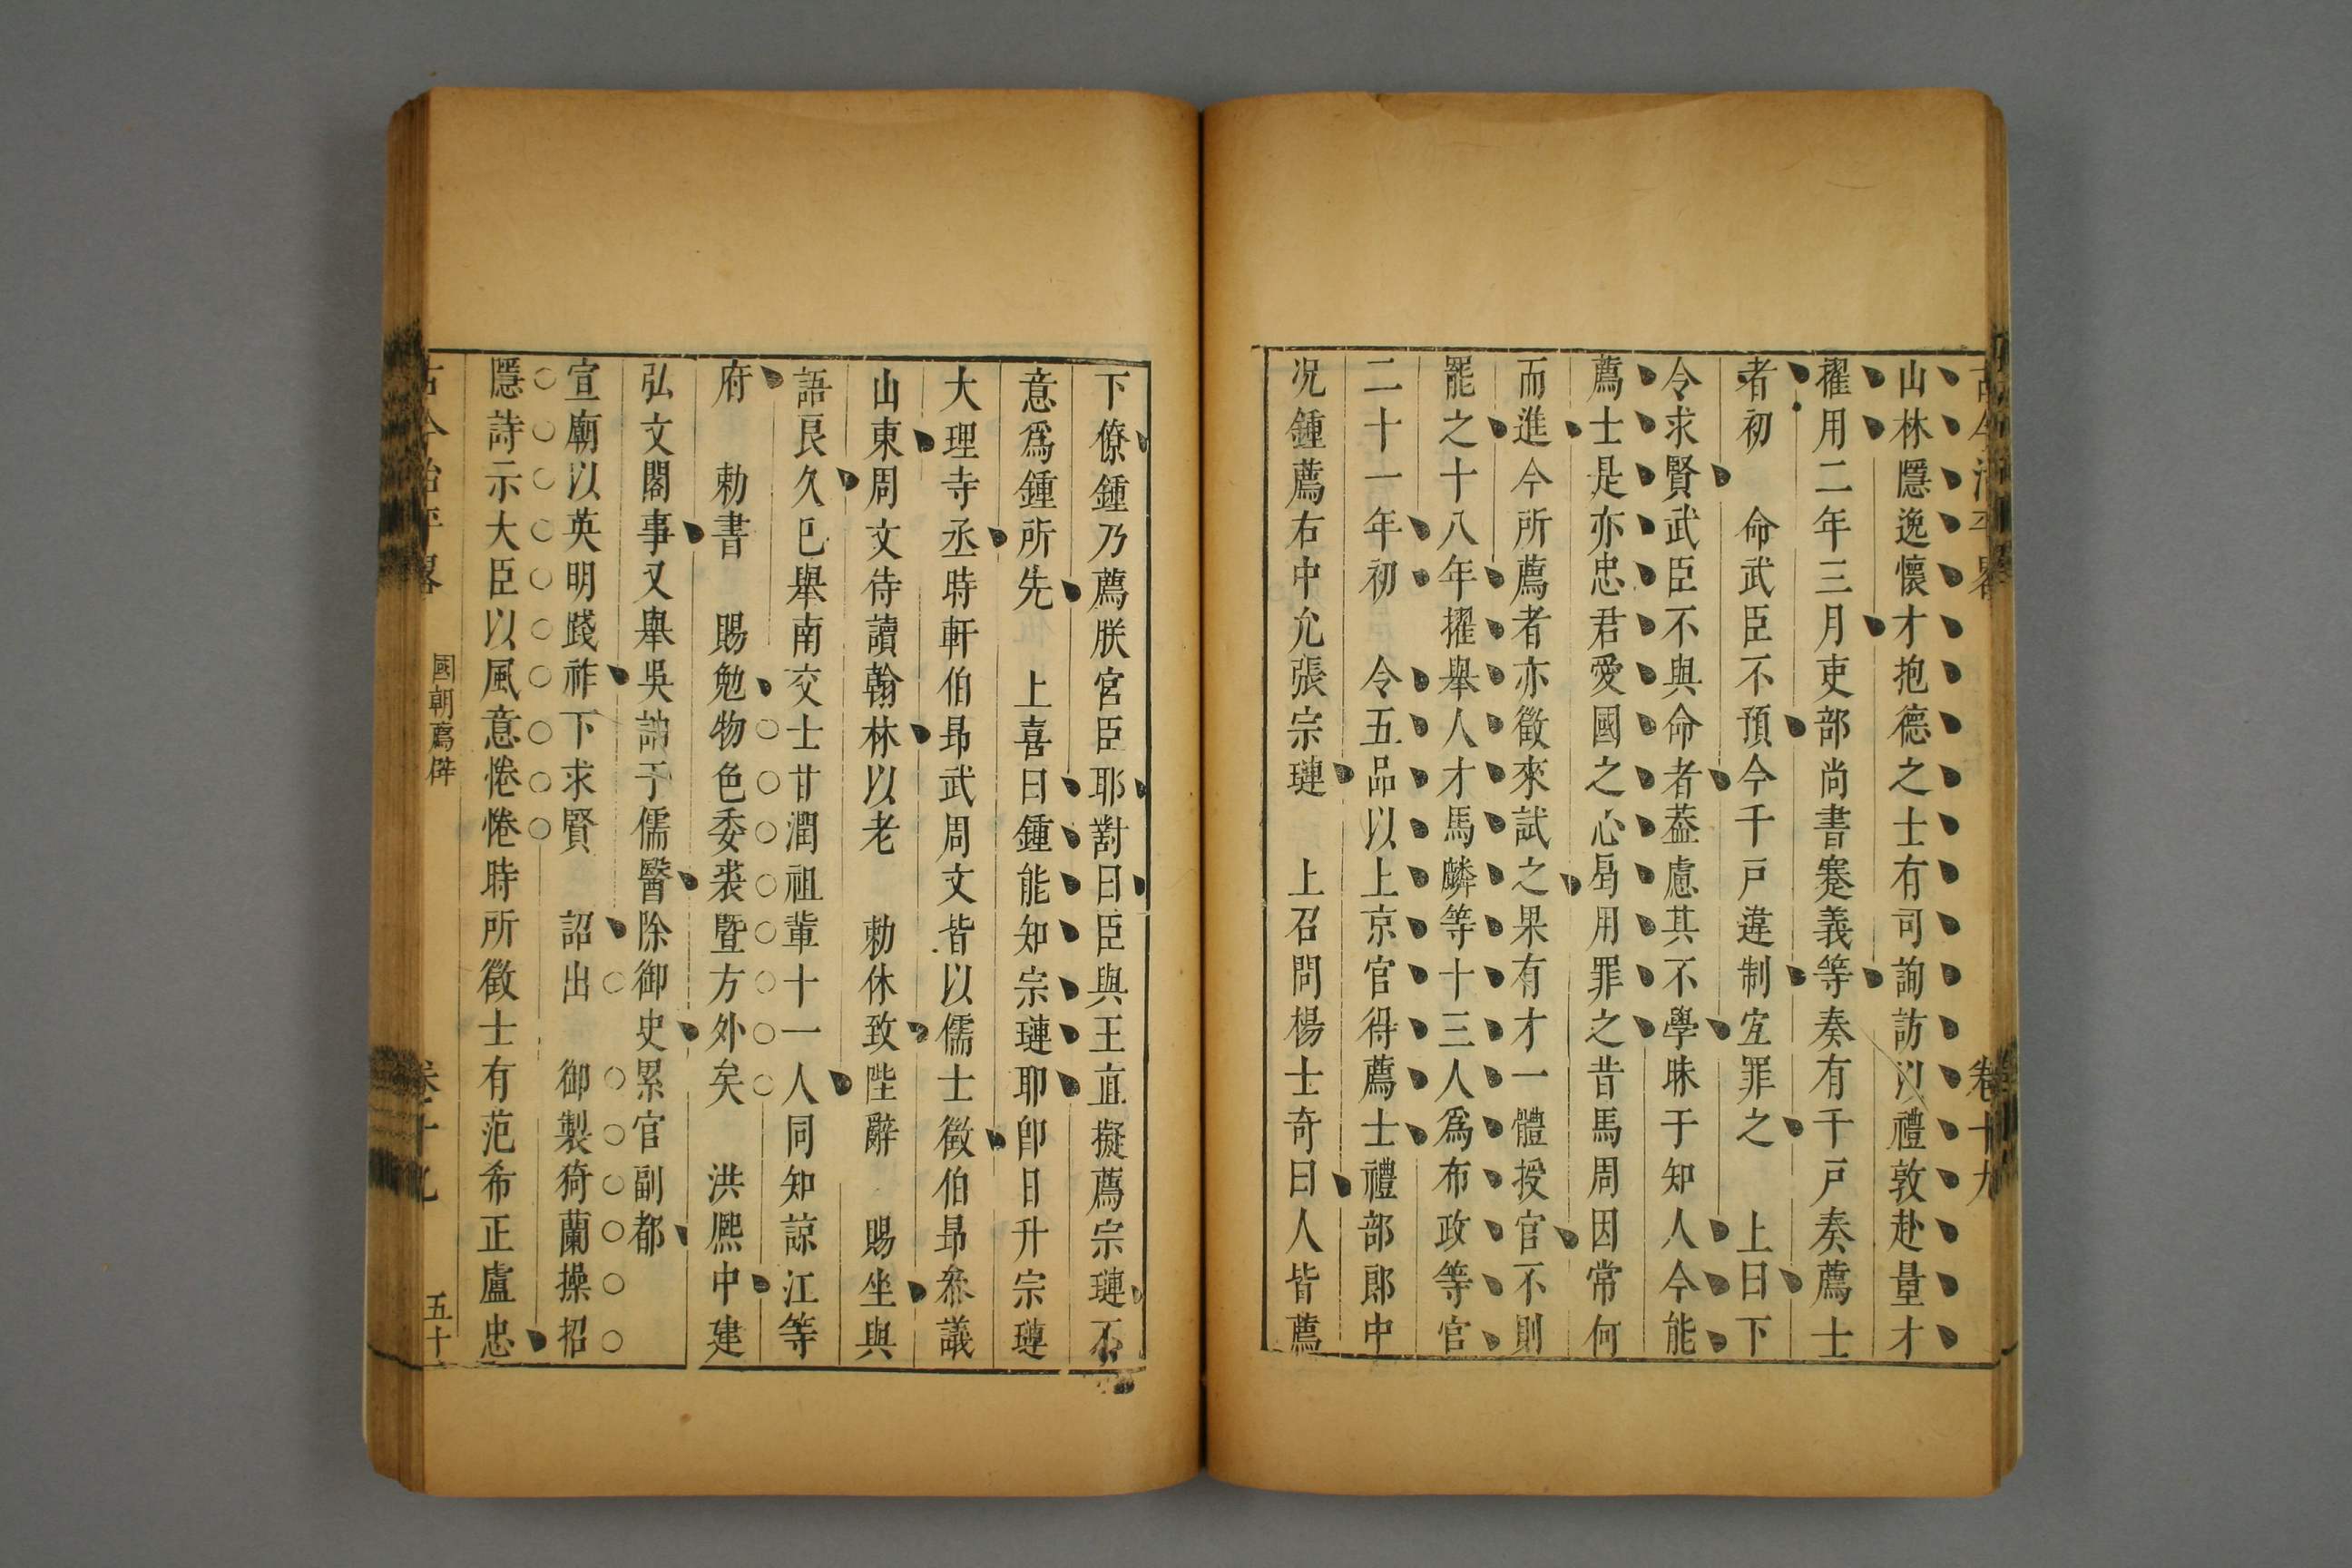 古今治平畧 卷十九
山林隱逸懷才抱德之士有司詢訪以禮敦赴量才
擢用二年三月吏部尚書蹇義等奏有千戸奏薦士
者初 命武臣不預今千戸違制宐罪之 上曰下
令求賢武臣不與命者葢慮其不學昧于知人今能
薦士是亦忠君愛國之心曷用罪之昔馬周因常何
而進今所薦者亦徵來試之果有才一體授官不則
罷之十八年擢舉人才馬麟等十三人爲布政等官
二十一年初 令五品以上京官得薦士禮部郎中
况鍾薦右中允張宗璉 上召問楊士奇曰人皆薦
下僚鍾乃薦朕宮臣耶對曰臣與王直擬薦宗璉不
意爲鍾所先 上喜曰鍾能知宗璉耶卽日升宗璉
大理寺丞時軒伯昻武周文皆以儒士徵伯昻叅議
山東周文侍讀翰林以老 勅休致陛辭 賜坐與
語良久巳舉南交士甘潤祖輩十一人同知諒江等
府 勅書 賜勉物色委裘暨方外矣 洪熙中建
弘文閣事又舉吳訥于儒醫除御史累官副都
宣廟以英明踐祚下求賢 詔出 御製猗蘭操招
隱詩示大臣以風意惓惓時所徵士有范希正盧忠
古今治平畧 國朝薦辟 卷十九 五十